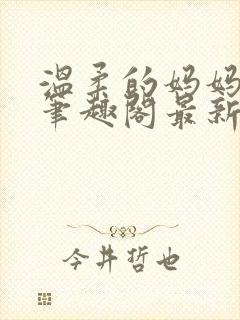 温柔的妈妈
笔趣阁最新
今井哲也